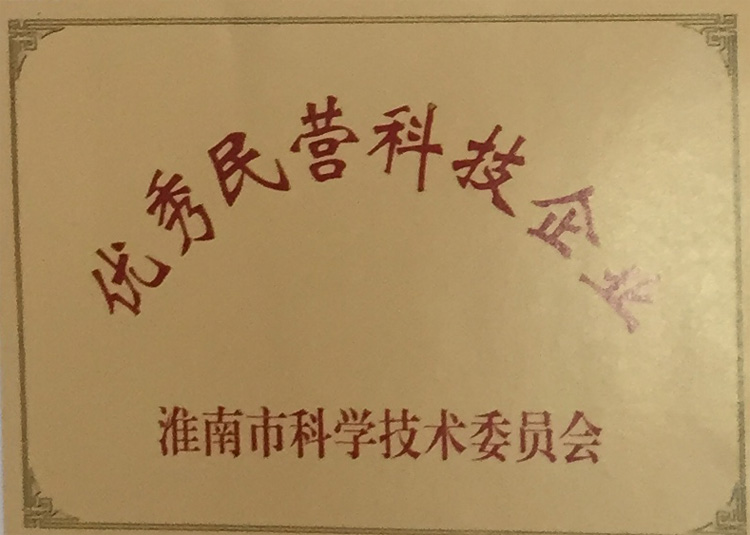 优秀民营科技企业
淮南市科学技术委员会